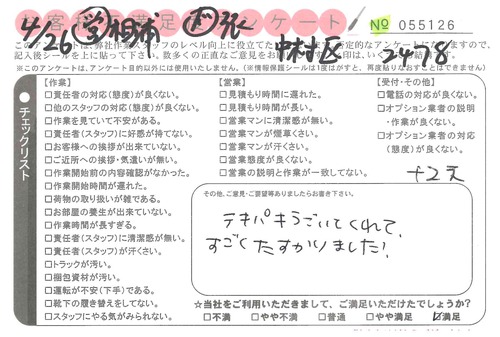 お客様満足アンケート
№ 055126
4/26
中村区
24-18
※このアンケートは、アンケート目的以外には使用いたしません。(※情報保護シールは1度はがすと、再度貼りなおすことはできません)
チェックリスト
【作業】
□責任者の対応(態度)が良くない。
□他のスタッフの対応(態度)が良くない。
□作業を見ていて不安がある。
□責任者(スタッフ)に好感が持てない。
□お客様への挨拶が出来ていない。
□ご近所への挨拶・気遣いが無い。
□作業開始前の内容確認がなかった。
□作業開始時間が遅れた。
□荷物の取り扱いが雑である。
□お部屋の養生が出来ていない。
□作業時間が長すぎる。
□責任者(スタッフ)に清潔感が無い。
□責任者(スタッフ)が汗くさい。
□トラックが汚い。
□梱包資材が汚い。
□運転が不安(下手)である。
□靴下の履き替えをしてない。
□スタッフにやる気がみられない。
【営業】
□見積もり時間に遅れた。
□見積もり時間が長い。
□営業マンに清潔感が無い。
□営業マンが煙草くさい。
□営業マンが汗くさい。
□営業態度が良くない。
□営業の説明と作業が一致してない。
【受付・その他】
□電話の対応が良くない。
□オプション業者の説明・作業が良くない。
□オプション業者の対応(態度)が良くない。
その他、ご意見・ご要望等ありましたらお書き下さい。
テキパキうごいてくれて、
すごくたすかりました!
☆当社をご利用いただきまして、ご満足いただけたでしょうか?
□不満 □やや不満 □普通 □やや満足 ☑満足